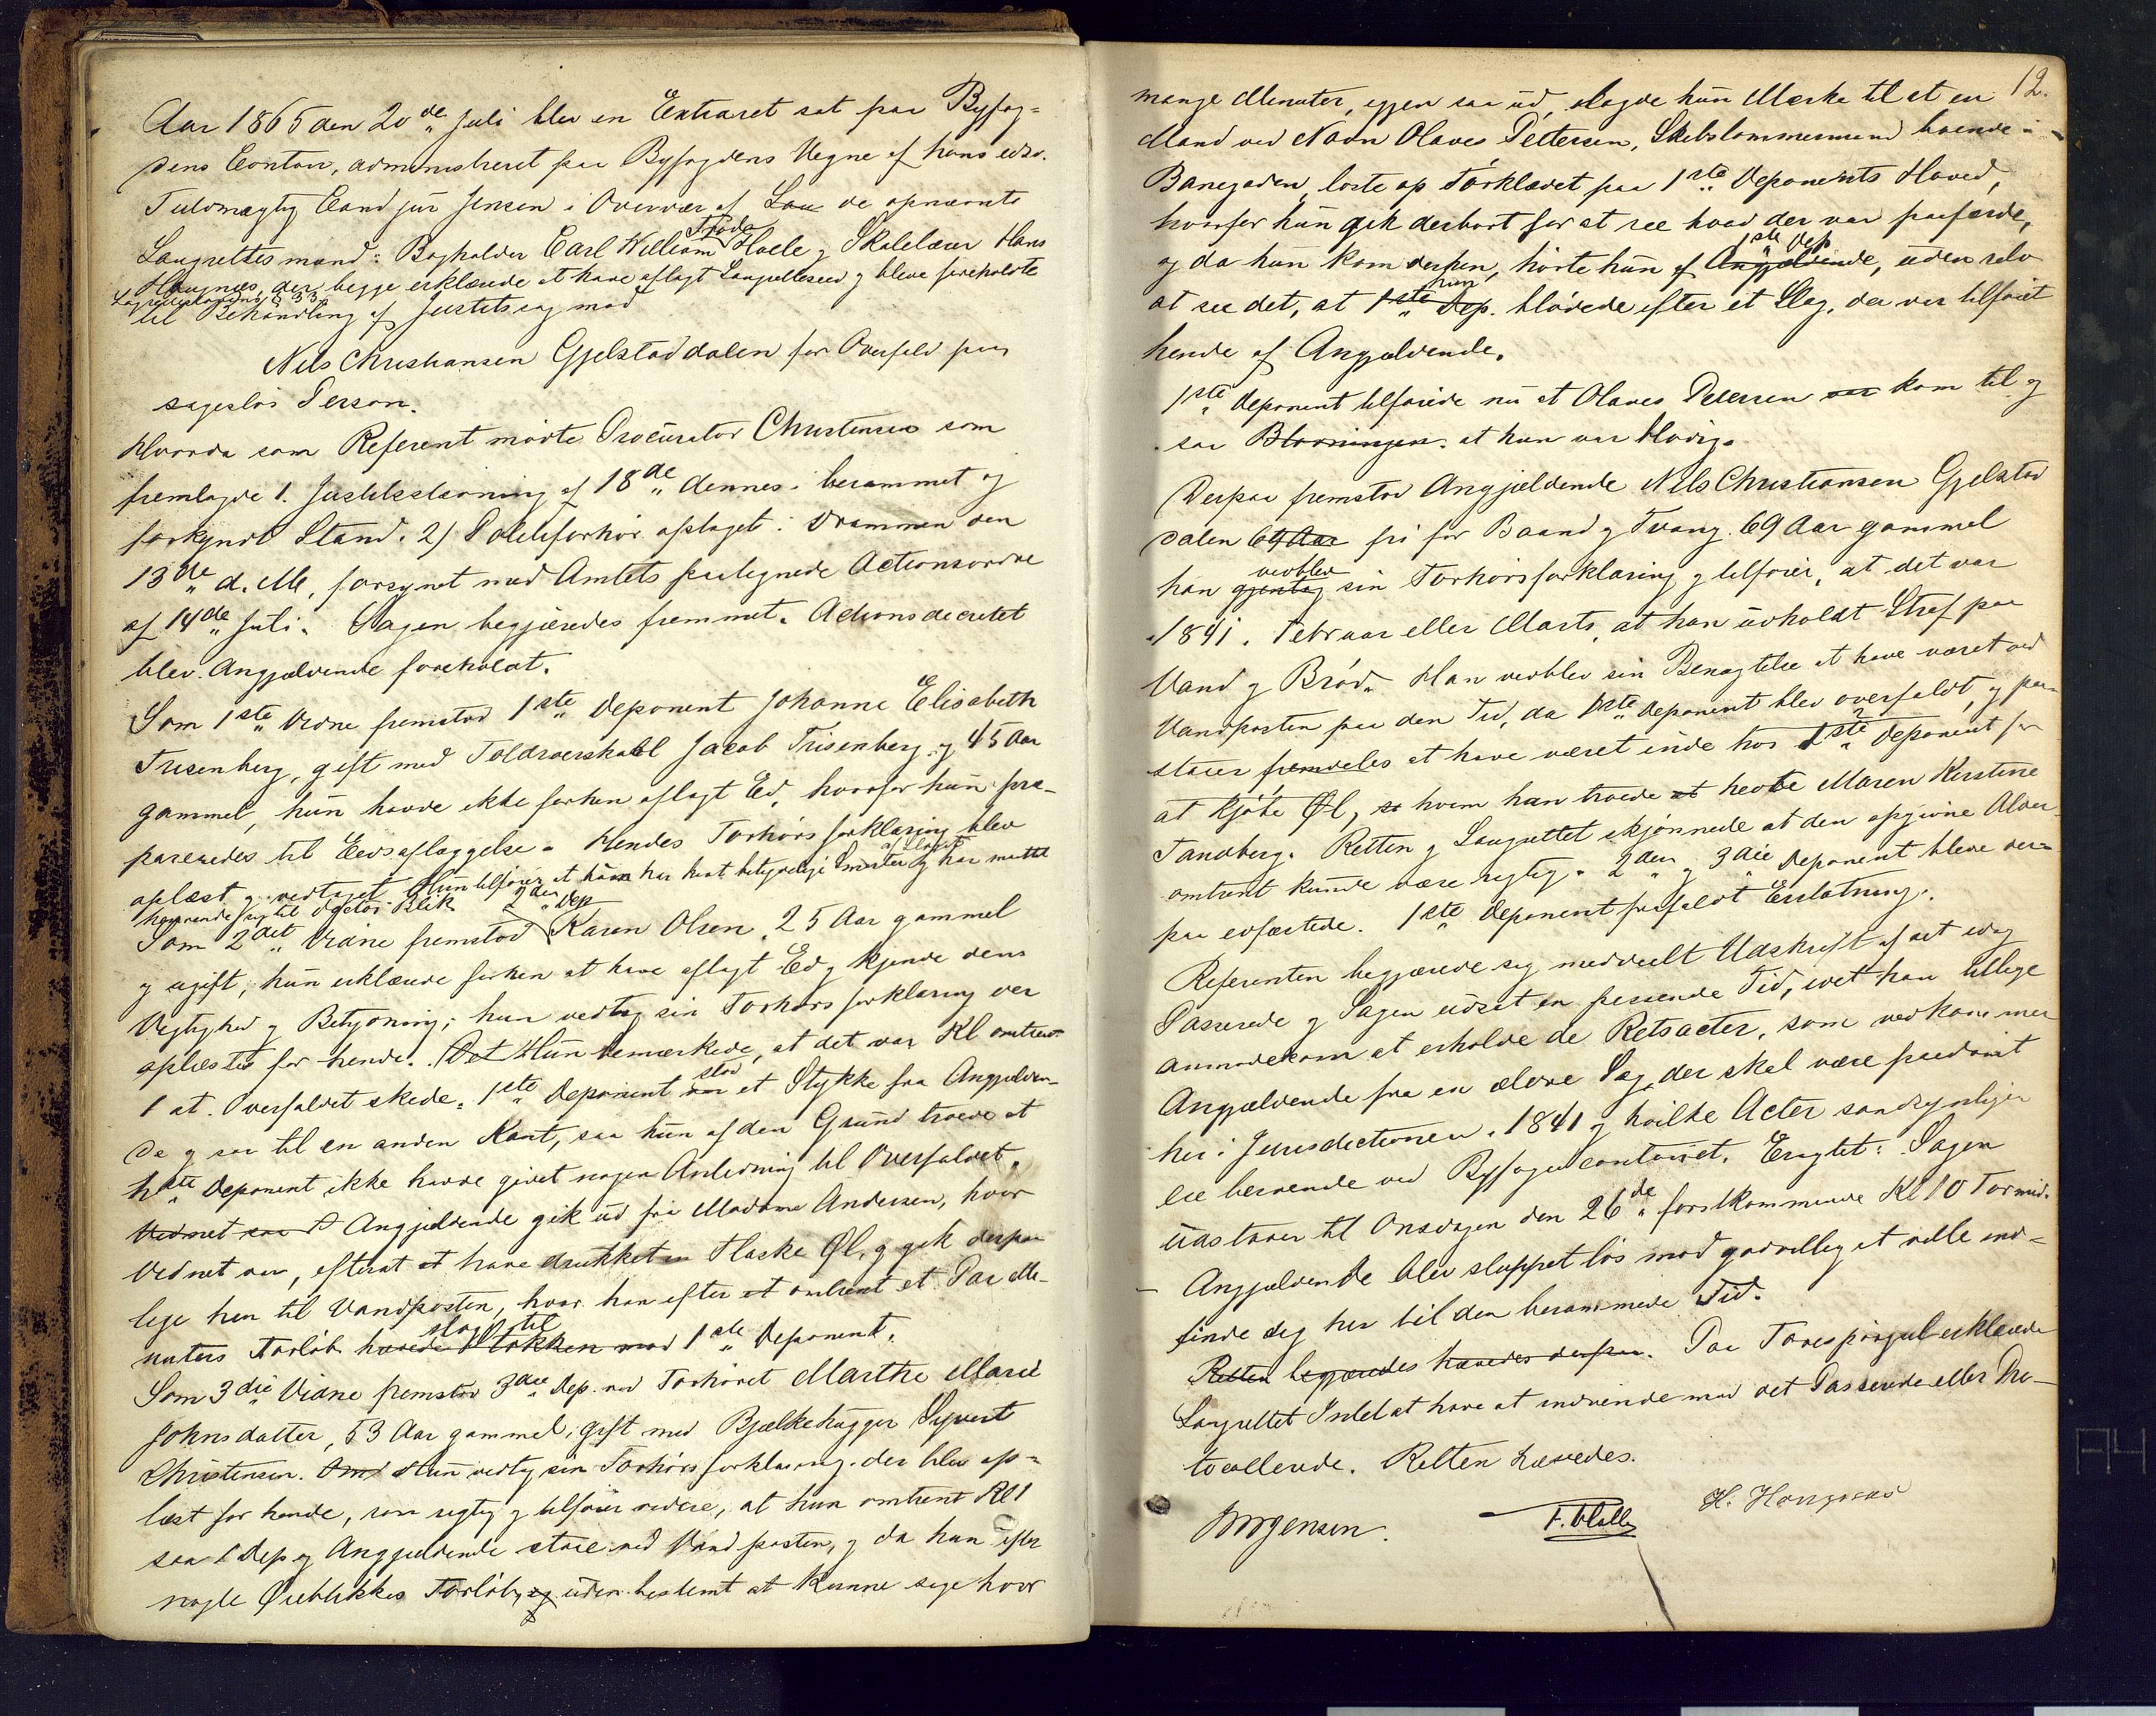 Aar 1865 den 20de Juli blev en Extraret sat paa Byfog-
dens Contoir, administreret paa Byfogdens Vegne af hans edsv.
Fuldmægtig Cand jur Jensen i Overvær af Lau de opnævnte
Laugrettesmænd: Bogholder Carl William Frode Holle og Skolelærer Hans
Haugnæs, der begge erklærede at have aflagt Laugretteseed og bleve foreholdte
Lagretteslovens § 33
til Behandling af Justitssag mod
Nils Christiansen Gjelstaddalen for Overfald paa
sagesløs Person.
Hvorda som Referent mødte Procurator Christensen som
fremlagde 1. Justitsstævning af 18de dennes i berammet og
forkyndt Stand. 2) Politiforhør aftaget i Drammen den
13de d. M., forsynet med Amtets paategnede Actionsordre
af 14de Juli. Sagen begjæredes fremmet. Actionsdecretet
blev Angjældende foreholdt.
Som 1ste Vidne fremstod 1ste Deponent Johanne Elisabeth
Frisenberg, gift med Toldroerskarl Jacob Frisenberg, og 45 Aar
gammel, hun havde ikke forhen aflagt Ed, hvorfor hun præ-
pareredes til Eedsaflæggelse. Hendes Forhørsforklaring blev
oplæst og vedtaget Hun tilføier at hun har havt betydelige Smerter af Slaget og har maatte
henvende sig til Doctor Blik 2den Dep
Som 2det Vidne fremstod Karen Olsen, 25 Aar gammel
og ugift, hun erklærede forhen at have aflagt Ed og kjende dens
Vigtighed og Betydning; hun vedtog sin Forhørsforklaring der
oplæstes for hende. Det Hun bemærkede, at det var Kl omtrent
1 at Overfaldet skede. 1ste Deponent var stod et Stykke fra Angjælden-
de og saa til en anden Kant, saa hun af den Grund troede at
1ste Deponent ikke havde givet nogen Anledning til Overfaldet.
Vidnet saa at Angjældende gik ud fra Madame Andersen, hvor
Vidnet var, efterat at have drukket en Flaske Øl, og gik derpaa
lige hen til Vandposten, hvor han efter et omtrent et Par Mi-
nuters Forløb hævede Stokken mod slog til 1ste Deponent.
Som 3die Vidne fremstod 3die Dep. ved Forhøret Marthe Marie
Johnsdatter, 53 Aar gammel, gift med Bjælkehugger Syvert
Christensen. Om Hun vedtog sin Forhørsforklaring der blev op-
læst for hende, som rigtig og tilføier videre, at hun omtrent Kl 1
saa 1 Dep og Angjældende staae ved Vandposten, og da hun efter
nogle Øieblikkes Forløb, og uden bestemt at kunne sige hvor
12.
mange Minuter, igjen saa ud, lagde hun Mærke til at en
Mand ved Navn Olaves Pettersen, Skibstømmermand boende i
Banegaden, løste op Tørklædet paa 1ste Deponents Hoved,
hvorfor hun gik derbort for at see hvad der var paafærde,
og da hun kom derhen, hørte hun af Angjældende 1ste Dep, uden selv
at see det, at 1ste Dep. hun blødede efter et Slag, der var tilføiet
hende af Angjældende.
1ste Deponent tilføiede nu at Olaves Petersen saa kom til og
saa Blødningen. at hun var blodig.
Derpaa fremstod Angjældende Nils Christiansen Gjelstad
dalen 69 Aar fri for Baand og Tvang. 69 Aar gammel
han gjentog vedblev sin Forhørsforklaring og tilføier, at det var
i 1841 i Februar eller Marts, at han udholdt Straf paa
Vand og Brød. Han vedblev sin Benægtelse at have været ved
Vandposten paa den Tid, da 1ste Deponent blev overfaldt, og paa-
staaer fremdeles at have været inde hos 1ste 2 Deponent for
at kjøbe Øl, hvem han troede at hedte Maren Kirstine
Tandberg. Retten og Laugrettet skjønnede at den opgivne Alder
omtrent kunde være rigtig. 2den og 3die Deponent bleve der-
paa edfæstede. 1ste Deponent frafaldt Erstatning.
Referenten begjærede sig meddeelt Udskrift af det idag
Passerede og Sagen udsat en passende Tid, idet han tillige
anmodede om at erholde de Retsacter, som vedkommer
Angjældende fra en ældre Sag, der skal være paadømt
her i Jurisdictionen i 1841 og hvilke Acter sandsynligen
ere beroende ved Byfogedcontoiret. Eragtet: Sagen
udstaaer til Onsdagen den 26de førstkommende Kl 10 Formid.
Angjældende blev sluppet løs mod godvillig at ville ind-
finde sig her til den berammede Tid.
Retten begjæredes hævedes derpaa. Paa Forespørgsel erklærede
Laugrettet Intet at have at indvende mod det Passerede eller Pro-
tocollerede. Retten hævedes.
Jensen. F. Holle H. Haugnæs